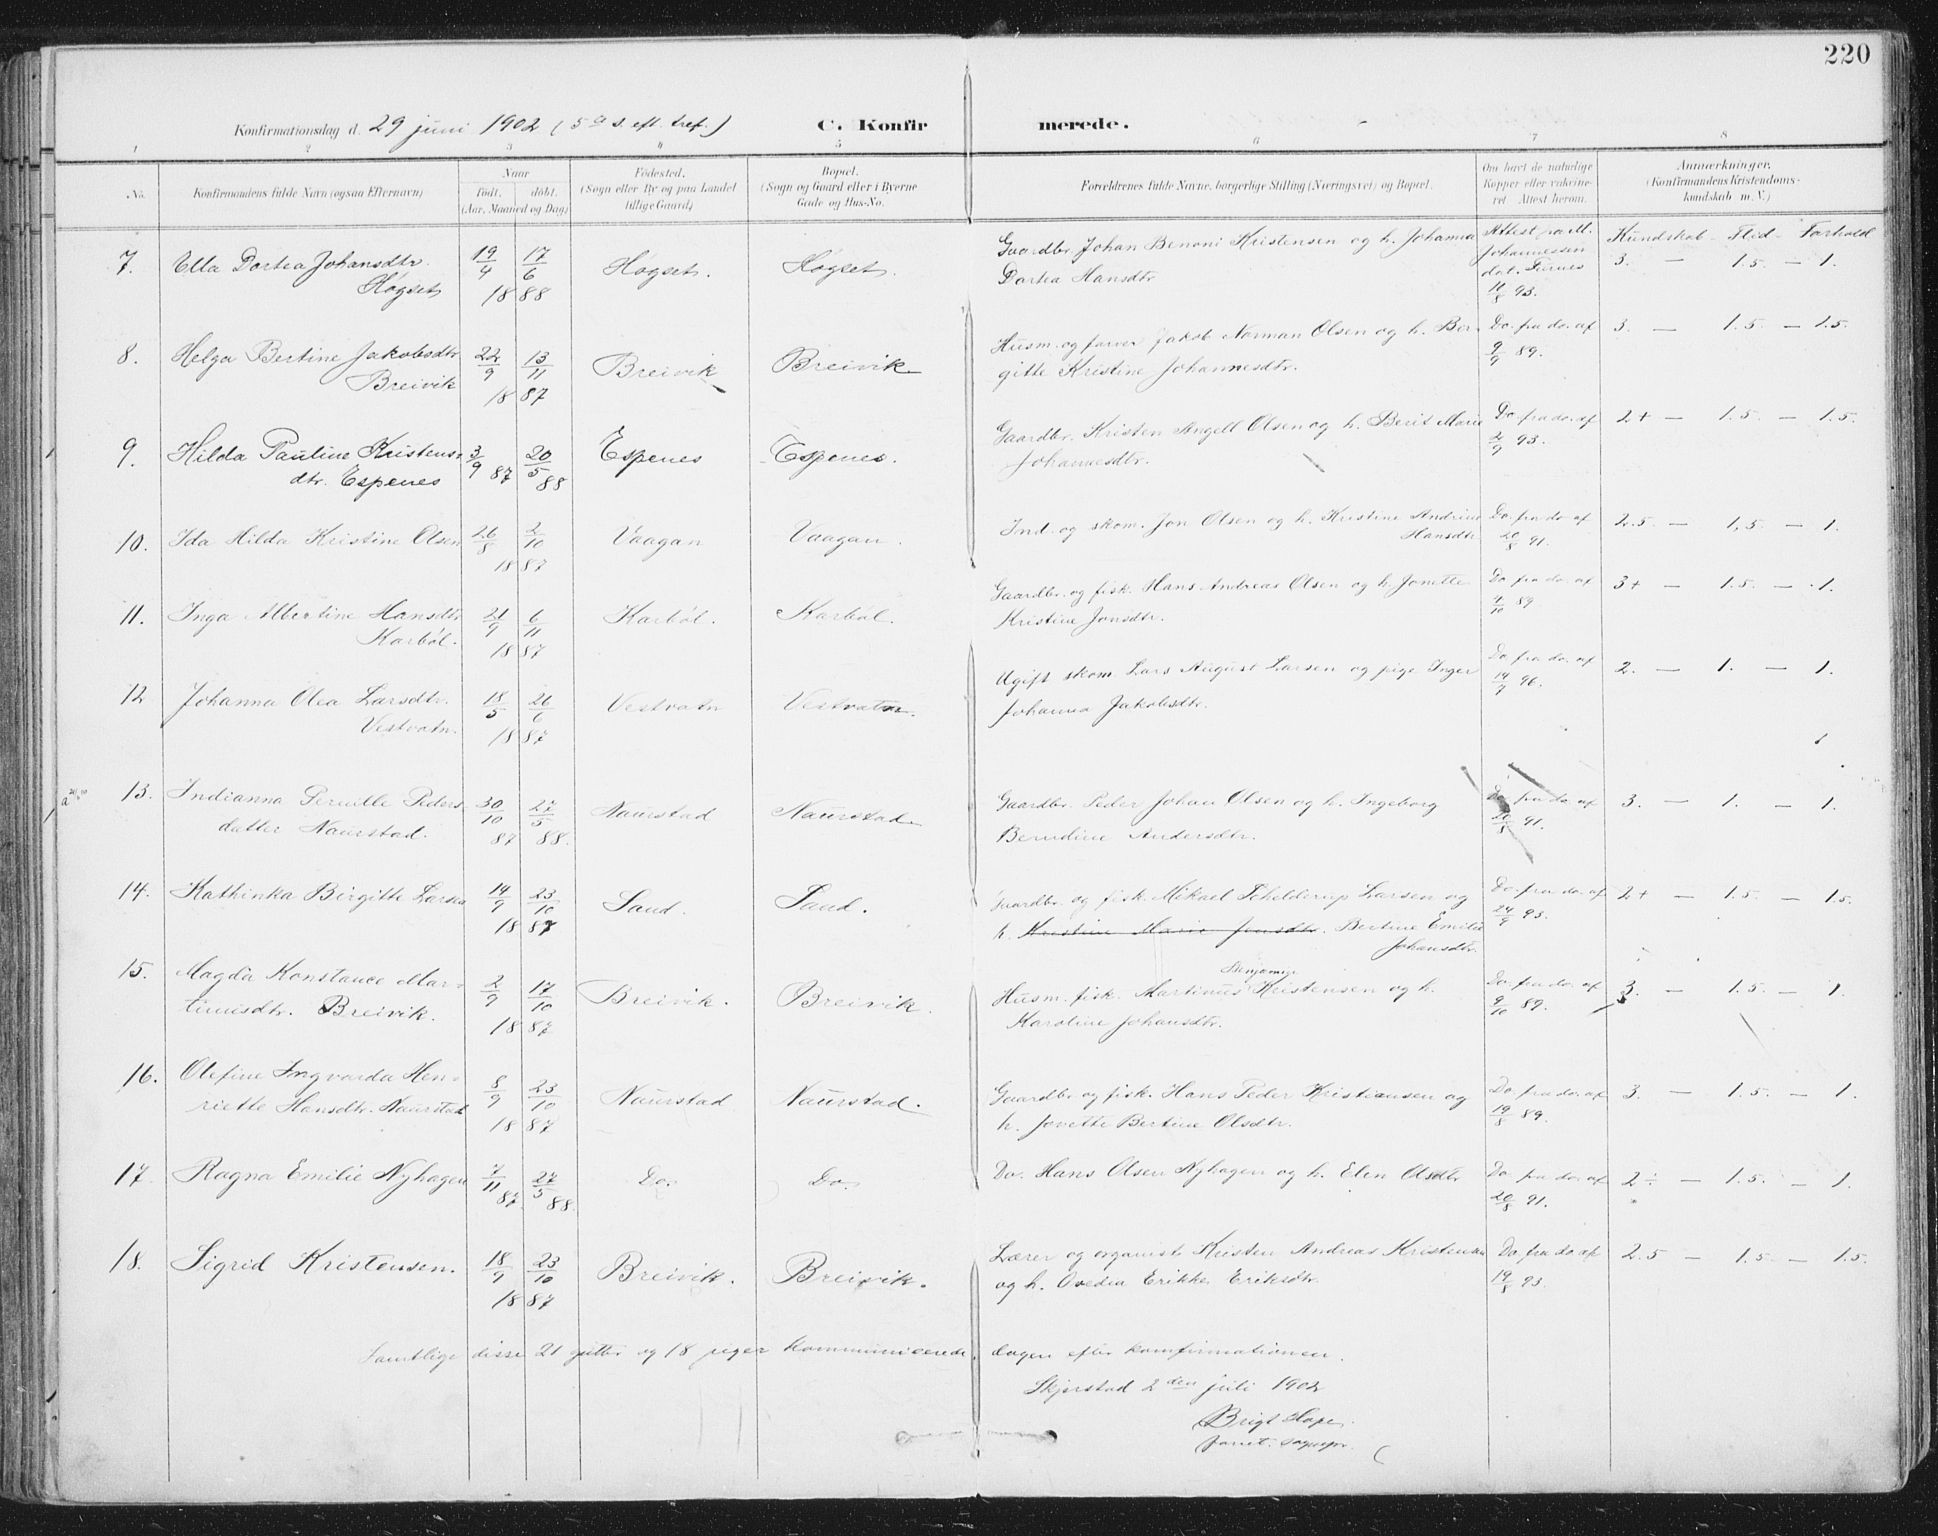 220
Konfirmationsdag d. 29 juni 1902 (5te s. eft. tref.) C. Konfirmerede.
1 2 3 4 5 6 7 8
No. Konfirmandens fulde Navn (ogsaa Efternavn) Naar født. døbt. (Aar, Maaned og Dag) Födested. (Sogn eller By og paa Landet tillige Gaard) Bopæl. (Sogn og Gaard eller i Byerne Gade og Hus-No. Forældrenes fulde Navne, borgerlige Stilling (Næringsvei) og Bopæl. Om havt de naturlige Kopper eller vaccineret. Attest herom. Anmærkninger. (Konfirmandens Kristendomskundskab m. V.)
Kundskab - Flid - Forhold
7. Ella Dortea Johansdtr. 19/4 17/6 Høgset. Høgset. Gaardbr. Johan Benoni Kristensen og h. Johanna Attest fra M. Johannessen 3. — 1.5. — 1.
Høgset 1888 Dortea Hansdtr dat. 11/8 93.
8. Helga Bertine Jakobsdtr 22/9 13/11 Breivik Breivik Husm. og farver Jakob Norman Olsen og h. Ber- Do. fra do. af 3. — 1.5. — 1.5.
Breivik 1887 gitte Kristine Johannesdtr. 9/9 89.
9. Hilda Pauline Kristens- 3/9 87 20/5 88 Espenes Espenes. Gaardbr. Kristen Angell Olsen og h. Berit Marie Do. fra do. af 2+ — 1.5. — 1.5.
dtr. Espenes Johannesdtr. 2/9 93.
10. Ida Hilda Kristine Olsen 26/8 2/10 Vaagan Vaagan. Ind. og skom. Jon Olsen og h. Kristine Andrine Do. fra do. af 2.5. — 1,5. — 1.
1887 Hansdtr 20/8 91.
11. Inga Albertine Hansdtr 21/9 6/11 Karbøl. Karbøl. Gaardbr. og fisk. Hans Andreas Olsen og h. Jonette Do. fra do. af 3+ — 1.5. — 1.
Karbøl. 1887 Kristine Jonsdtr. 9/10 89
12 Johanna Olea Larsdtr. 18/5 26/6 Vestvatn Vestvatn. Ugift skom. Lars August Larsen og pige Inger Do. fra do. af 2. — 1. — 1.
Vestvatn. 1887 Johanna Jakobsdtr. 14/9 96.
13. Indianna Pernille Peders- 30/10 27/5 Naurstad Naurstad Gaardbr. Peder Johan Olsen og h. Ingeborg Do. fra do. af 3. — 1. — 1.
datter Naurstad. 87 88. Berndine Andersdtr. 20/8 91.
14. Kathinka Birgitte Larsen 14/9 23/10 Sand. Sand. Gaardbr. og fisk. Mikael Schelderup Larsen og Do. fra do. af 2+ — 1.5. — 1.5.
1887 h. Kristine Marie Jensdtr. Bertine Emilie 24/9 93.
Johansdtr.
15. Magda Konstance Mar- 2/9 17/10 Breivik. Breivik. Husm. fisk. Martinus Benjamin Kristensen og h. Do. fra do. af 3. — 1.5. — 1.
tinusdtr. Breivik. 1887 Karoline Johansdtr. 9/10 89.
16. Olefine Ingvarda Hen- 8/9 23/10 Naurstad Naurstad. Gaardbr og fisk. Hans Peder Kristiansen og Do. fra do. af 3. — 1.5. — 1.
riette Hansdtr. Naurstad 1887 h. Jonette Bertine Olsdtr. 19/8 89.
17. Ragna Emilie Nyhagen 7/11 87. 27/5 88. Do. Do. Do. Hans Olsen Nyhagen og h. Elen Olsdtr Do. fra do. af 2÷ — 1.5. — 1.
20/8 91.
18. Sigrid Kristensen. 18/9 23/10 Breivik. Breivik. Lærer og organist Kristen Andreas Kristensen Do. fra do. af 2.5 — 1.5. — 1.5.
1887 og h. Ovedia Erikke Eriksdtr. 19/8 93.
Samtlige disse 21 gutter og 18 piger kommunicerede dagen efter konfirmationen.
Skjerstad 2den juli 1902
Brigt Hope.